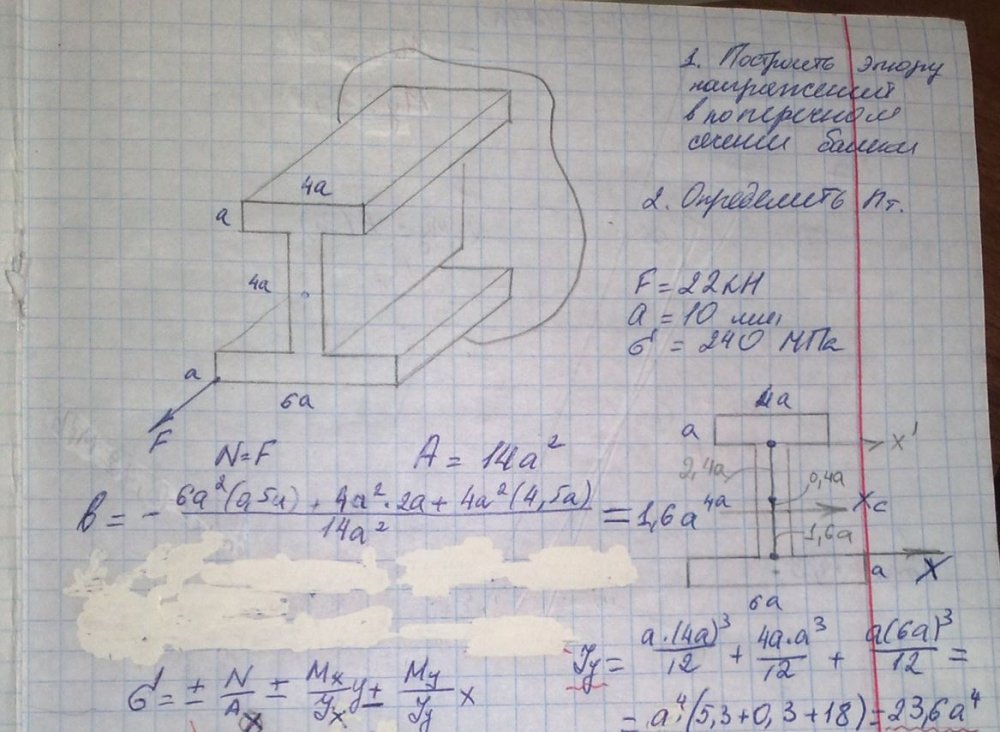 1. Построить эпюру
напряжений
в поперечном
сечении балки
2. Определить Пт.
4a
a
4a
a
6a
F
F = 22кН
a = 10 мм,
σ = 240 МПа
N=F
A = 14a²
b = - (6a²(0,5a) + 4a²·2a + 4a²(4,5a)) / 14a² = 1,6a
4a
a
x'
2,4a
0,4a
4a
Xc
1,6a
a
X
6a
Jy = a·(4a)³/12 + 4a·a³/12 + a(6a)³/12 =
= a⁴·(5,3+0,3+18) = 23,6a⁴
σ = ± N/A ± Mx/Jx y ± My/Jy x